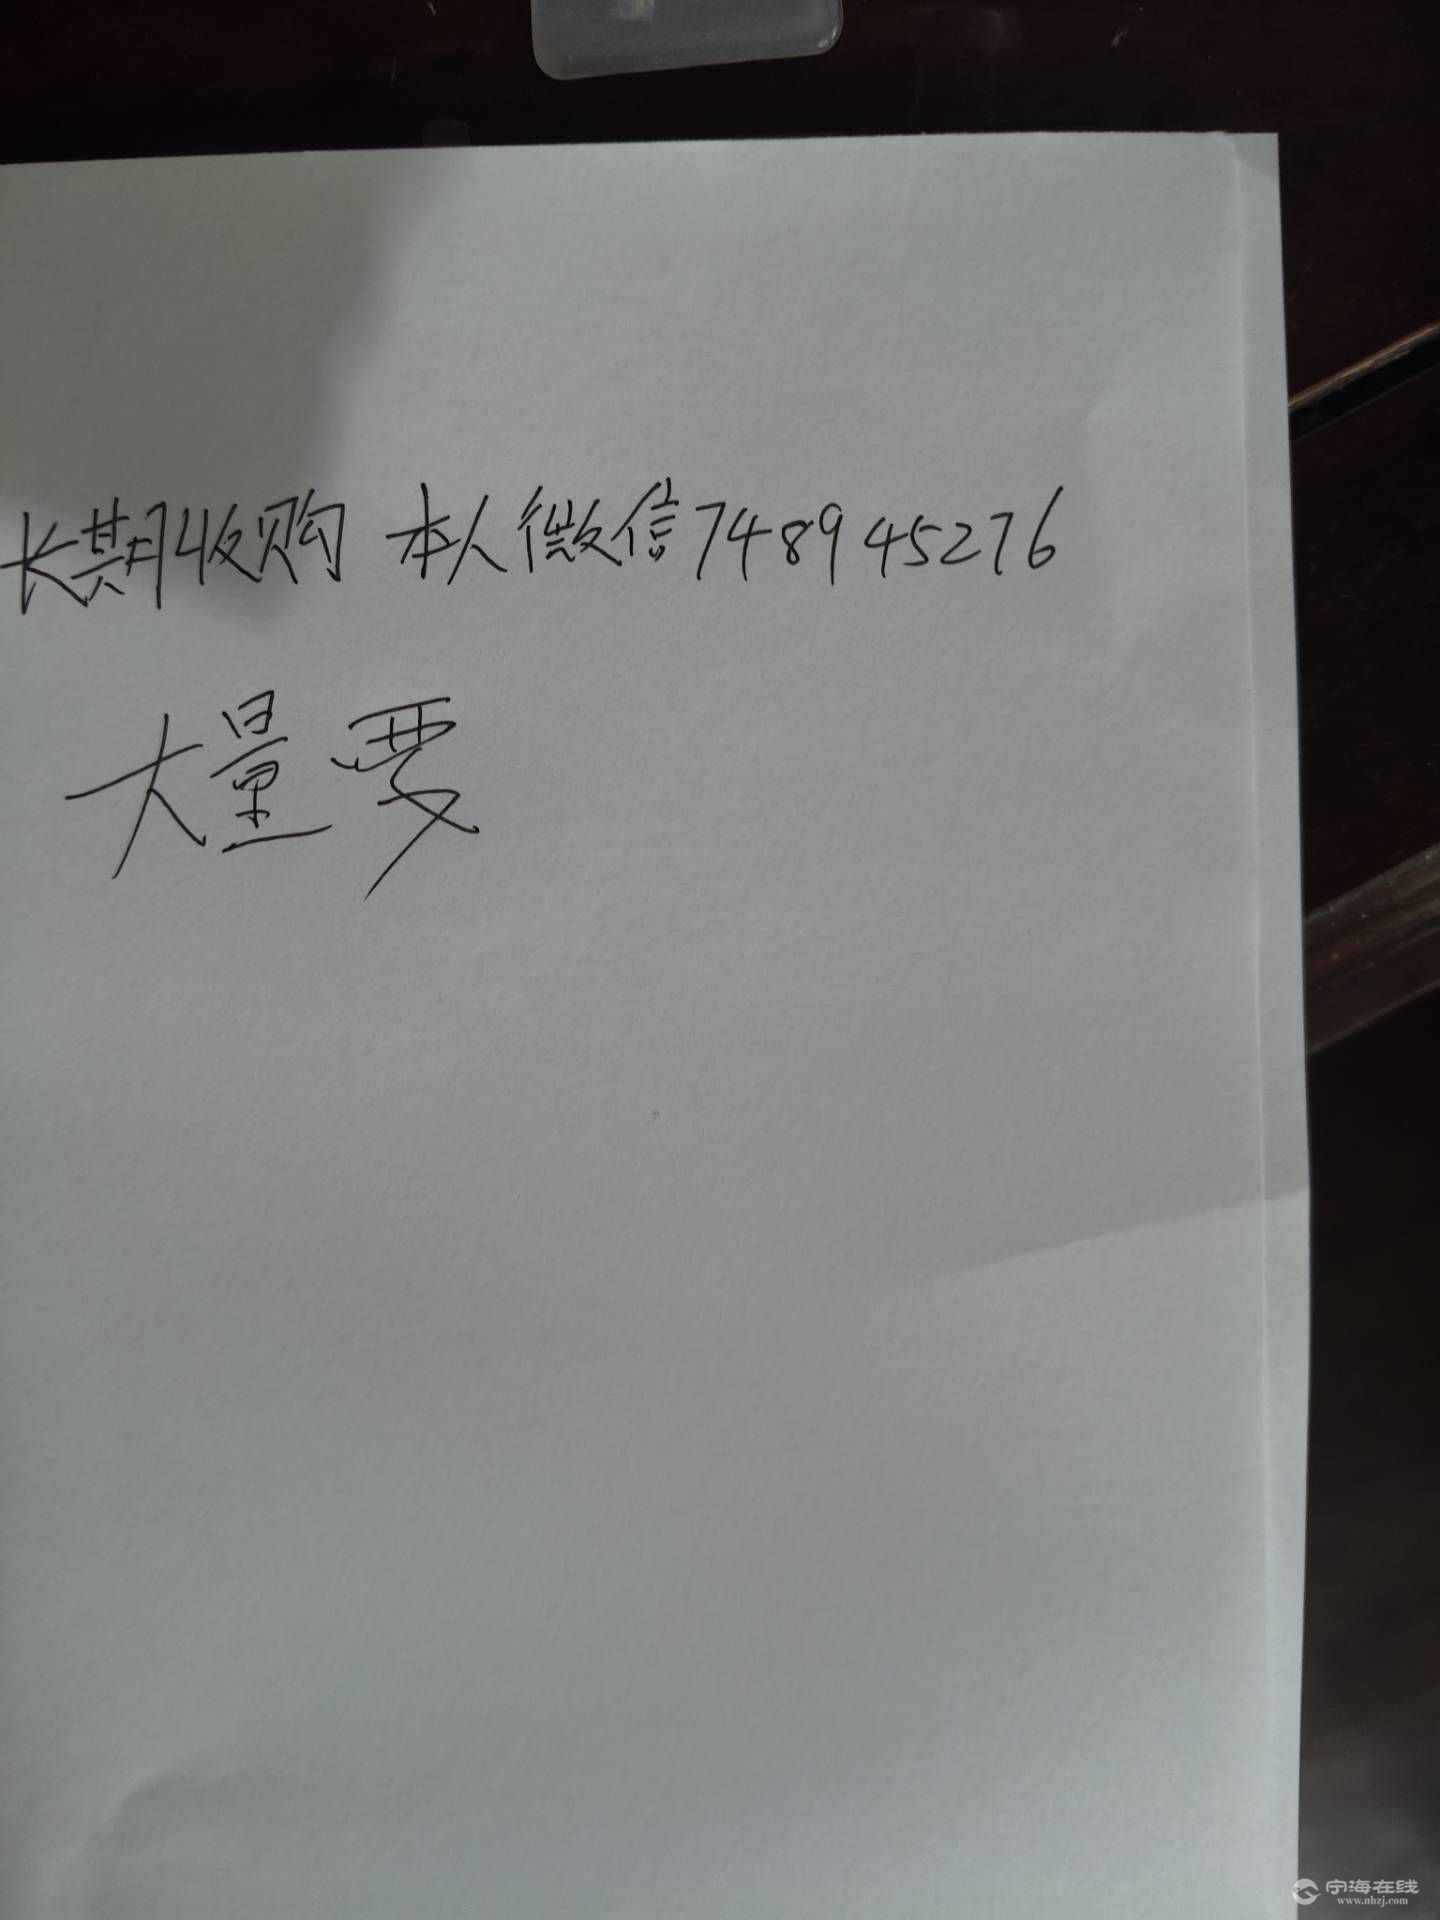 长期收购 本人微信748945276
大量要
宁海在线
www.nhzj.com